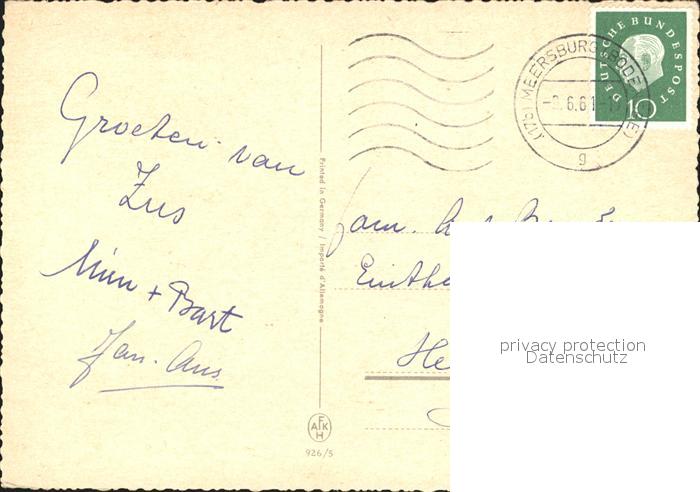 Groeten van
Zus
Mien + Bart
Jan. Ans.
Printed in Germany / Importé d'Allemagne
AFKH
926/5
(17b) MEERSBURG (BODENSEE)
6.61
g
DEUTSCHE BUNDESPOST
10
Fam.
He
privacy protection
Datenschutz